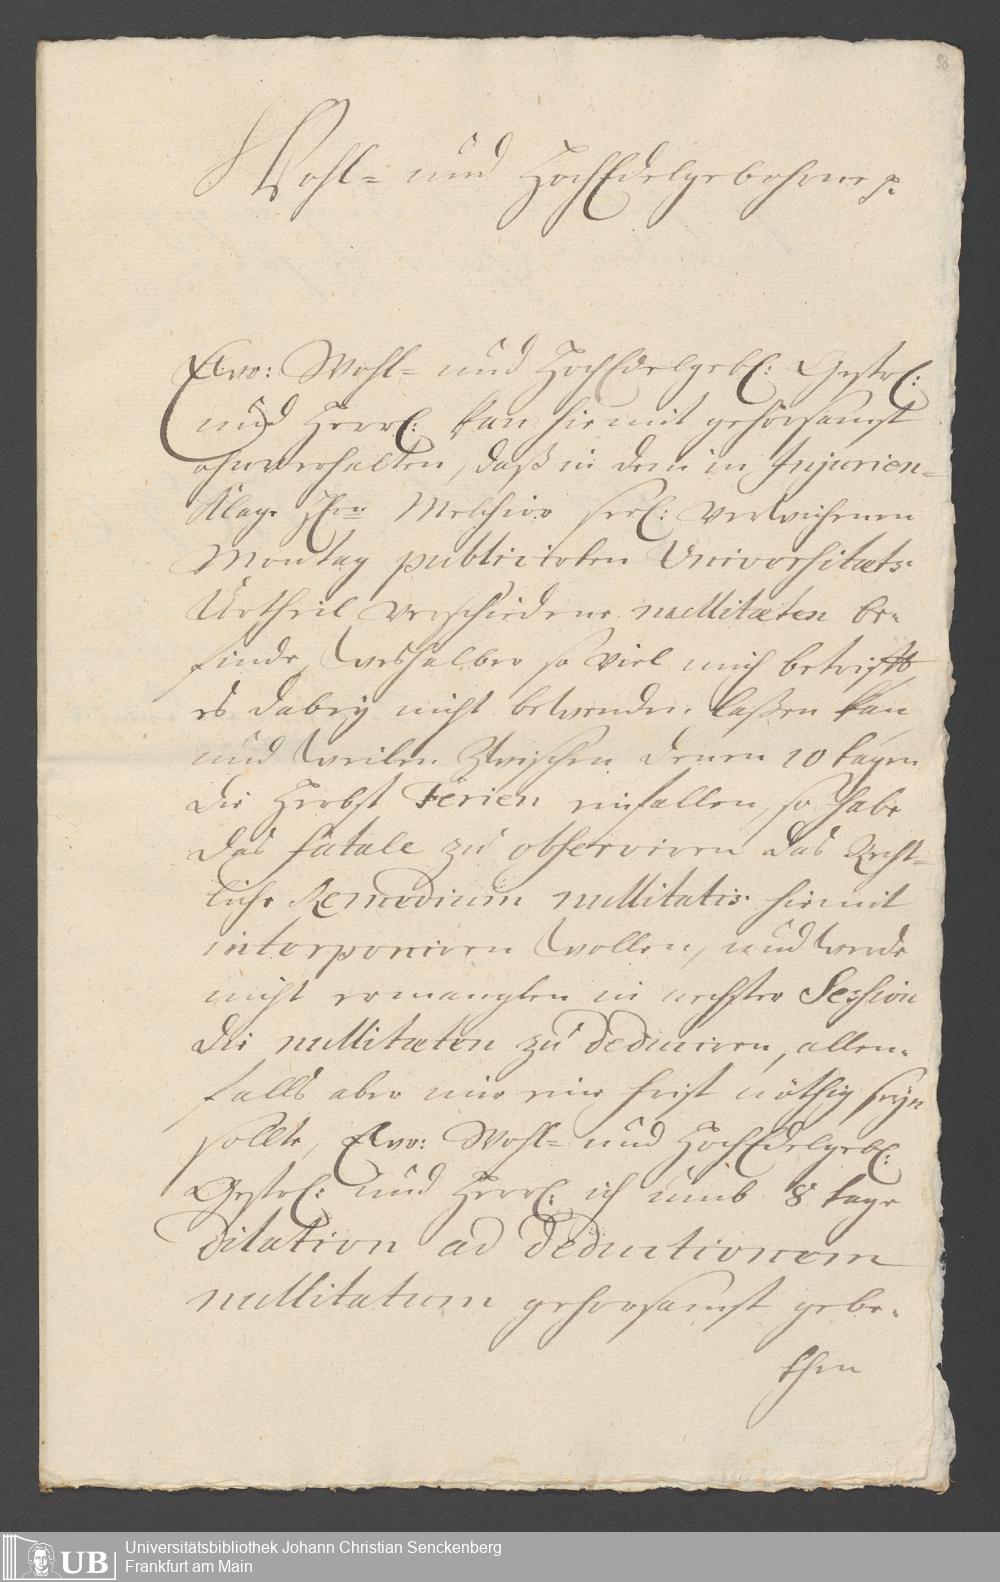 98
Wohl- und HochEdelgebohrne p.
Ewr: Wohl- und HochEdelgeb: Gestr:
und Herrl: kan hiermit gehorsamst
ohnverhalten, daß in dem in Injurien-
Klage Melchior seel: verwichenen
Montag publicirten Universitæts-
Urtheil verschiedene nullitæten be-
finde, weshalber so viel mich betrifft
es dabey nicht bewenden laßen kan
und weilen zwischen denen 10 tagen
die Herbst Ferien einfallen, so habe
das fatale zu observiren das Recht-
liche Remedium nullitatis hiermit
interponiren wollen, und werde
nicht ermanglen in nechster Session
die nullitæten zu deduciren, allen-
falls aber mir eine frist nöthig seyn
sollte, Ewr: Wohl- und HochEdelgeb:
Gestr: und Herrl: ich umb 8 tage
Dilation ad deductionem
nullitatum gehorsamst gebe-
then
UB
Universitätsbibliothek Johann Christian Senckenberg
Frankfurt am Main